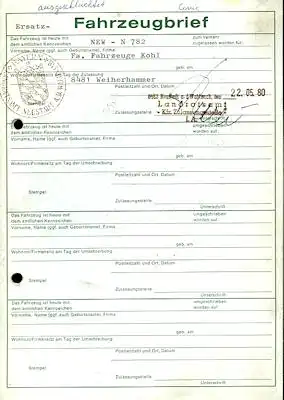 ausgeschlachtet
Ersatz- Fahrzeugbrief
Das Fahrzeug ist heute mit dem amtlichen Kennzeichen NEW - N 782 zum Verkehr zugelassen worden für:
Vorname, Name (ggf. auch Geburtsname), Firma
Fa. Fahrzeuge Kohl
geb. am
Wohnort/Firmensitz am Tag der Zulassung
8481 Weiherhammer
Postleitzahl und Ort, Datum
22. 05. 80
Landratsamt
Zulassungsstelle
- Kfz-Zulassungsstelle -
I. A.
Das Fahrzeug ist heute mit dem amtlichen Kennzeichen umgeschrieben worden auf:
Vorname, Name (ggf. auch Geburtsname), Firma
geb. am
Wohnort/Firmensitz am Tag der Umschreibung
Postleitzahl und Ort, Datum
Stempel
Zulassungsstelle
Unterschrift
Das Fahrzeug ist heute mit dem amtlichen Kennzeichen umgeschrieben worden auf:
Vorname, Name (ggf. auch Geburtsname), Firma
geb. am
Wohnort/Firmensitz am Tag der Umschreibung
Postleitzahl und Ort, Datum
Stempel
Zulassungsstelle
Unterschrift
Das Fahrzeug ist heute mit dem amtlichen Kennzeichen umgeschrieben worden auf:
Vorname, Name (ggf. auch Geburtsname), Firma
geb. am
Wohnort/Firmensitz am Tag der Umschreibung
Postleitzahl und Ort, Datum
Stempel
Zulassungsstelle
Unterschrift